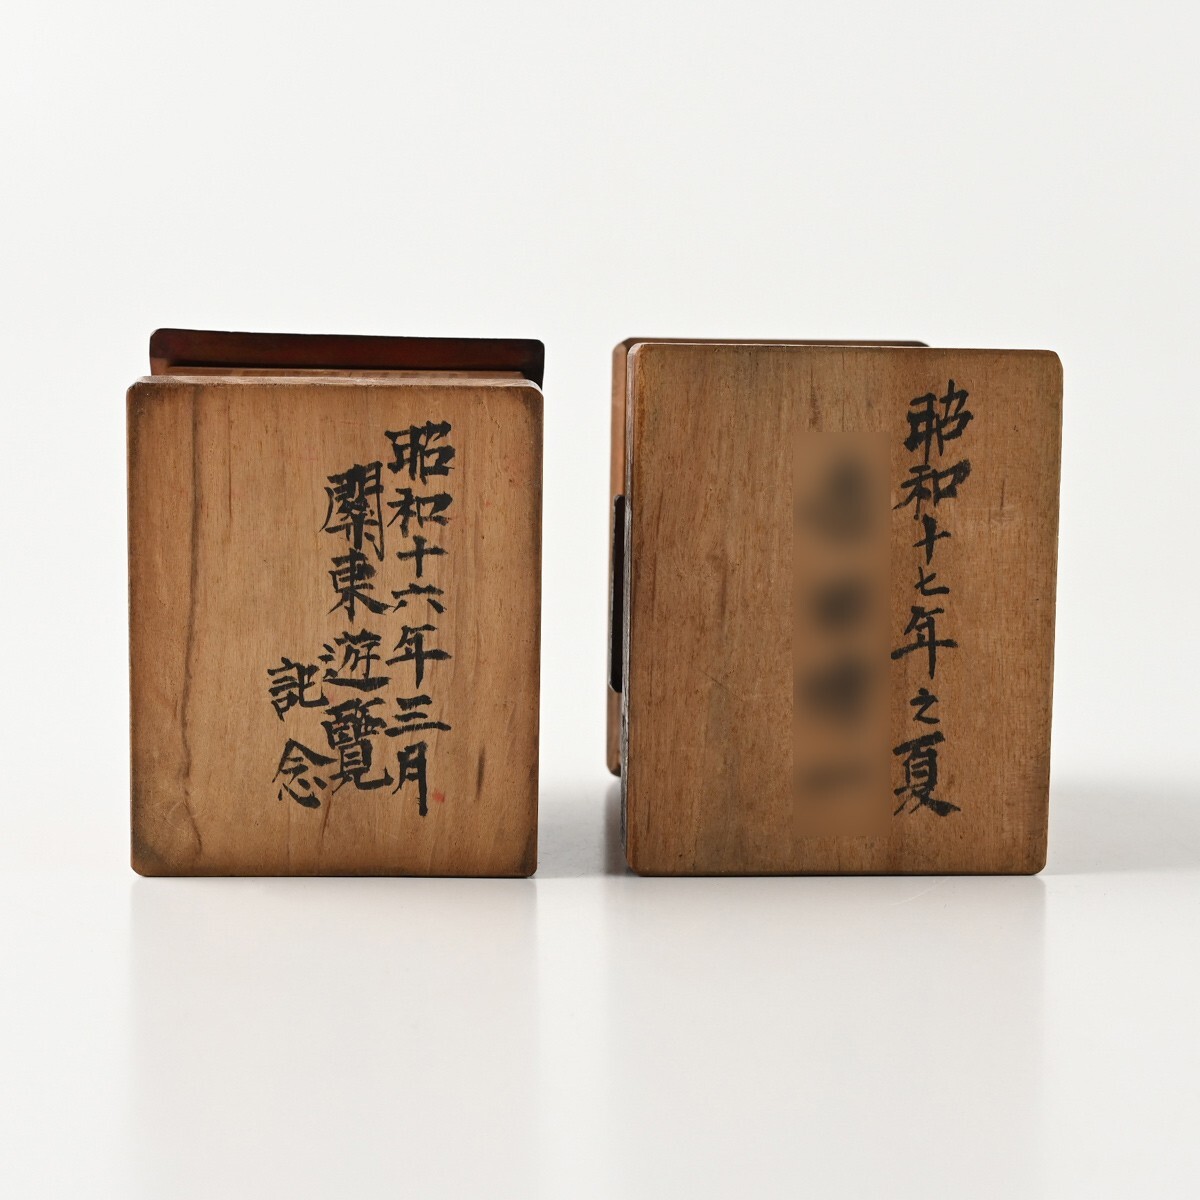 昭和十六年三月
關東遊覽
記念
昭和十七年之夏